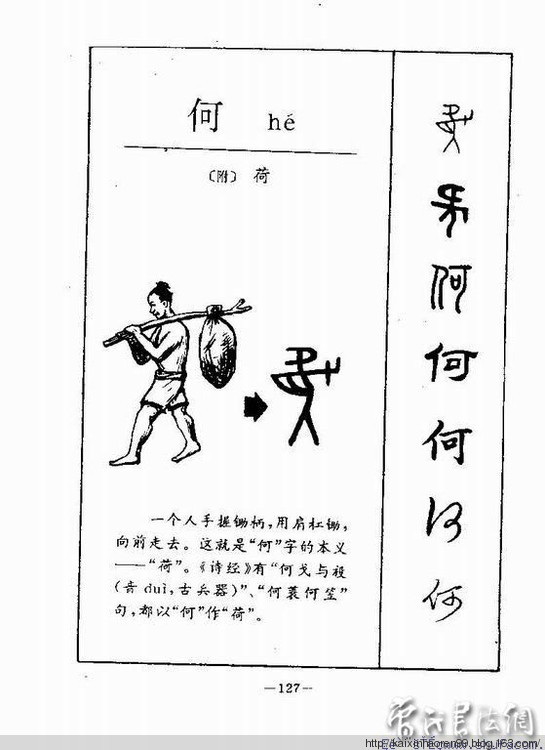 何 hé
〔附〕 荷
一个人手握锄柄，用肩杠锄，
向前走去。这就是“何”字的本义
——“荷”。《诗经》有“何戈与祋
（音duì，古兵器）”、“何蓑何笠”
句，都以“何”作“荷”。
何
何
何
何
何
—127—